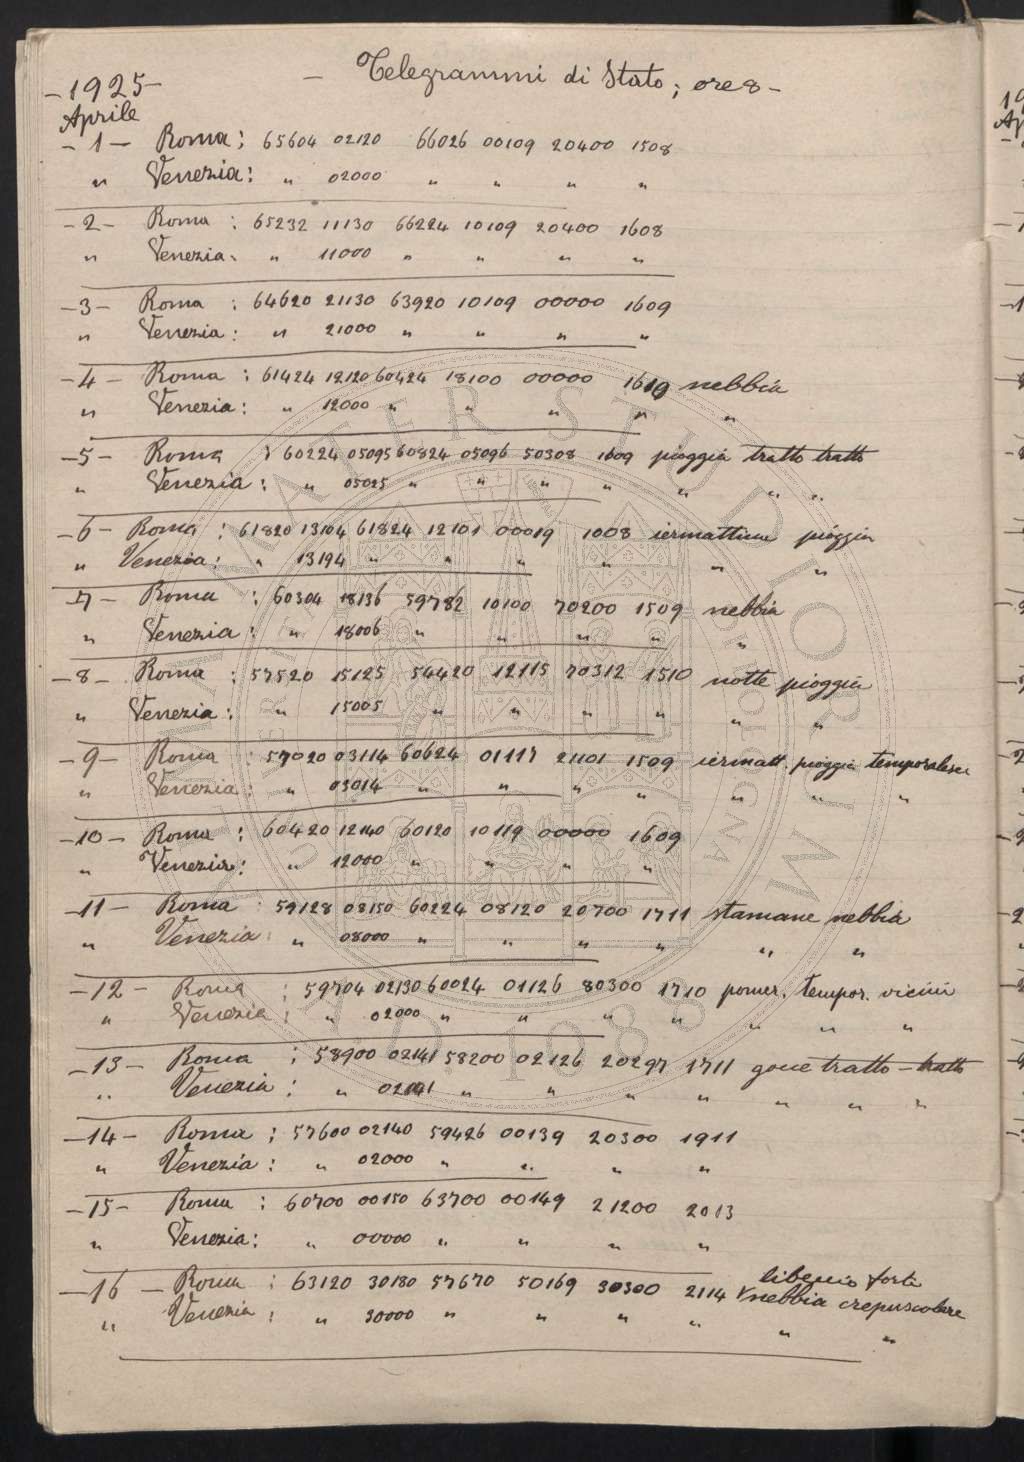 - 1925 -
- Telegrammi di Stato; ore 8 -
Aprile
- 1 - Roma: 65604 02120 66026 00109 20400 1508
" Venezia: " 02000 " " " "
- 2 - Roma: 65232 11130 66224 10109 20400 1608
" Venezia: " 11000 " " " "
- 3 - Roma: 64620 21130 63920 10109 00000 1609
" Venezia: " 21000 " " " "
- 4 - Roma: 61424 12120 60424 18100 00000 1619 nebbia
" Venezia: " 12000 " " " " "
- 5 - Roma: 60224 05095 60824 05096 50308 1609 pioggia tratto tratto
" Venezia: " 05025 " " " " " " "
- 6 - Roma: 61820 13104 61824 12101 00019 1008 iermattina pioggia
" Venezia: " 13194 " " " " " "
- 7 - Roma: 60304 18136 59782 10100 70200 1509 nebbia
" Venezia: " 18006 " " " " "
- 8 - Roma: 57520 15125 54420 12115 70312 1510 notte pioggia
" Venezia: " 15005 " " " " " "
- 9 - Roma: 57020 03114 60624 01117 21101 1509 iermatt. pioggia temporalesca
" Venezia: " 03014 " " " " " " "
- 10 - Roma: 60420 12140 60120 10119 00000 1609
" Venezia: " 12000 " " " "
- 11 - Roma: 59128 08150 60224 08120 20700 1711 stamane nebbia
" Venezia: " 08000 " " " " " "
- 12 - Roma: 59704 02130 60024 01126 80300 1710 pomer. tempor. vicini
" Venezia: " 02000 " " " " " " "
- 13 - Roma: 58900 02141 58200 02126 20297 1711 goccie tratto - tratto
" Venezia: " 02041 " " " " " " "
- 14 - Roma: 57600 02140 59426 00139 20300 1911
" Venezia: " 02000 " " " "
- 15 - Roma: 60700 00150 63700 00149 21200 2013
" Venezia: " 00000 " " " "
libeccio forte
- 16 - Roma: 63120 30180 57670 50169 30300 2114 nebbia crepuscolare
" Venezia: " 30000 " " " " " "
ALMA MATER STUDIORUM
A.D. 1088